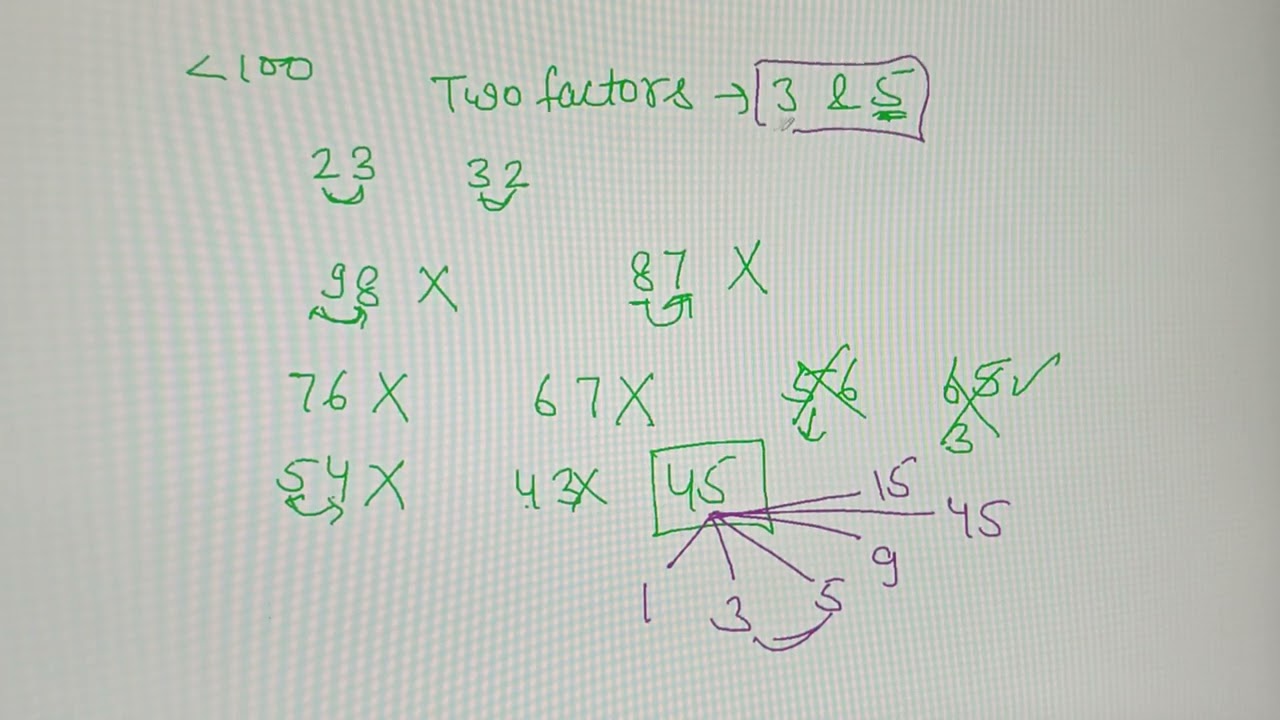 <100
Two factors → 3 & 5
23 32
98 X 87 X
76 X 67 X 56 65 ✓
3
54 X 43X 45 15
45
9
1 3 5